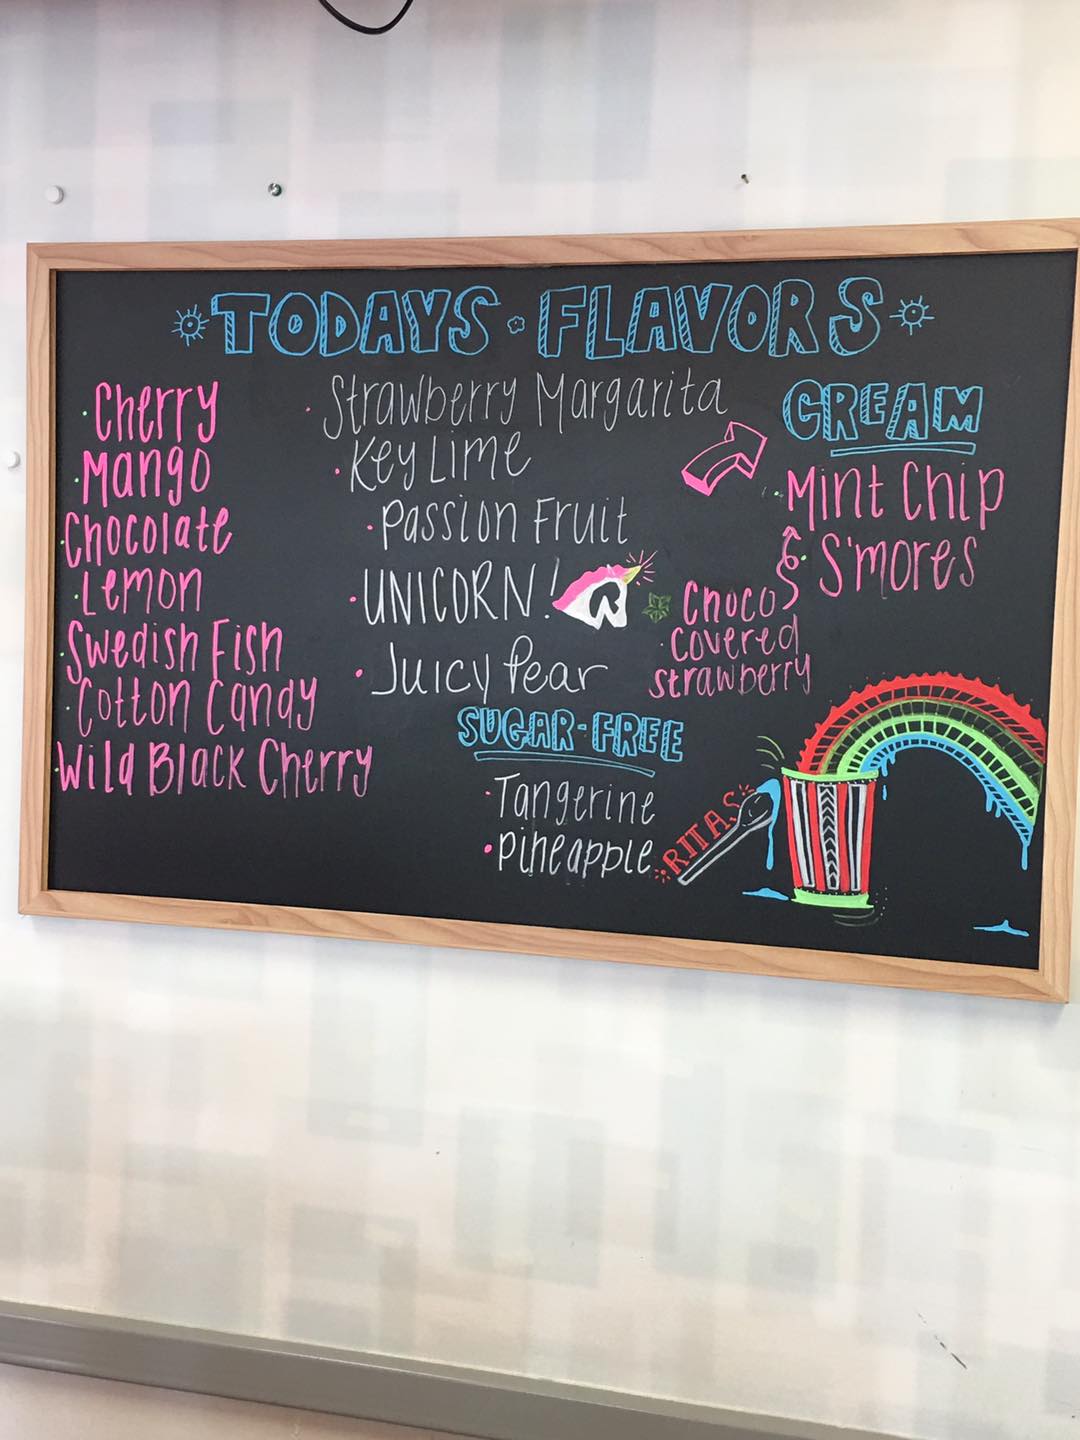 TODAYS FLAVORS
Cherry
Mango
Chocolate
Lemon
Swedish Fish
Cotton Candy
Wild Black Cherry
Strawberry Margarita
Key Lime
Passion Fruit
UNICORN!
Juicy Pear
SUGAR-FREE
Tangerine
Pineapple
CREAM
Mint Chip
S'mores
Choco
covered
strawberry
RITAS